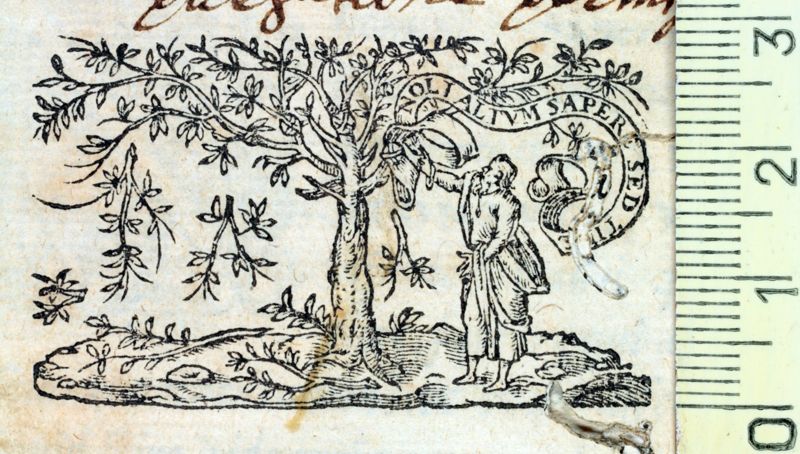 NOLI ALTVM SAPERE SED TI
3
2
1
0